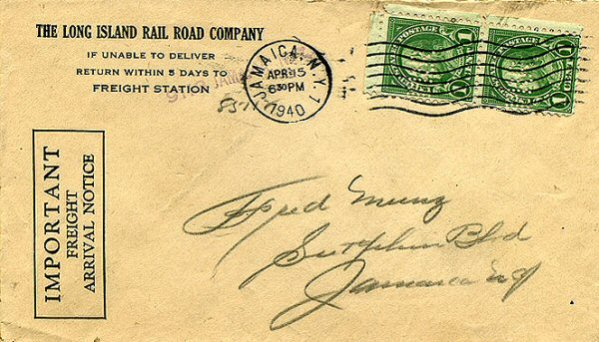 THE LONG ISLAND RAIL ROAD COMPANY
IF UNABLE TO DELIVER
RETURN WITHIN 5 DAYS TO
FREIGHT STATION
JAMAICA, N.Y. 1
APR 15
6 30 PM
1940
IMPORTANT
FREIGHT
ARRIVAL NOTICE
Fred Munz
Sutphin Blvd
Jamaica NY